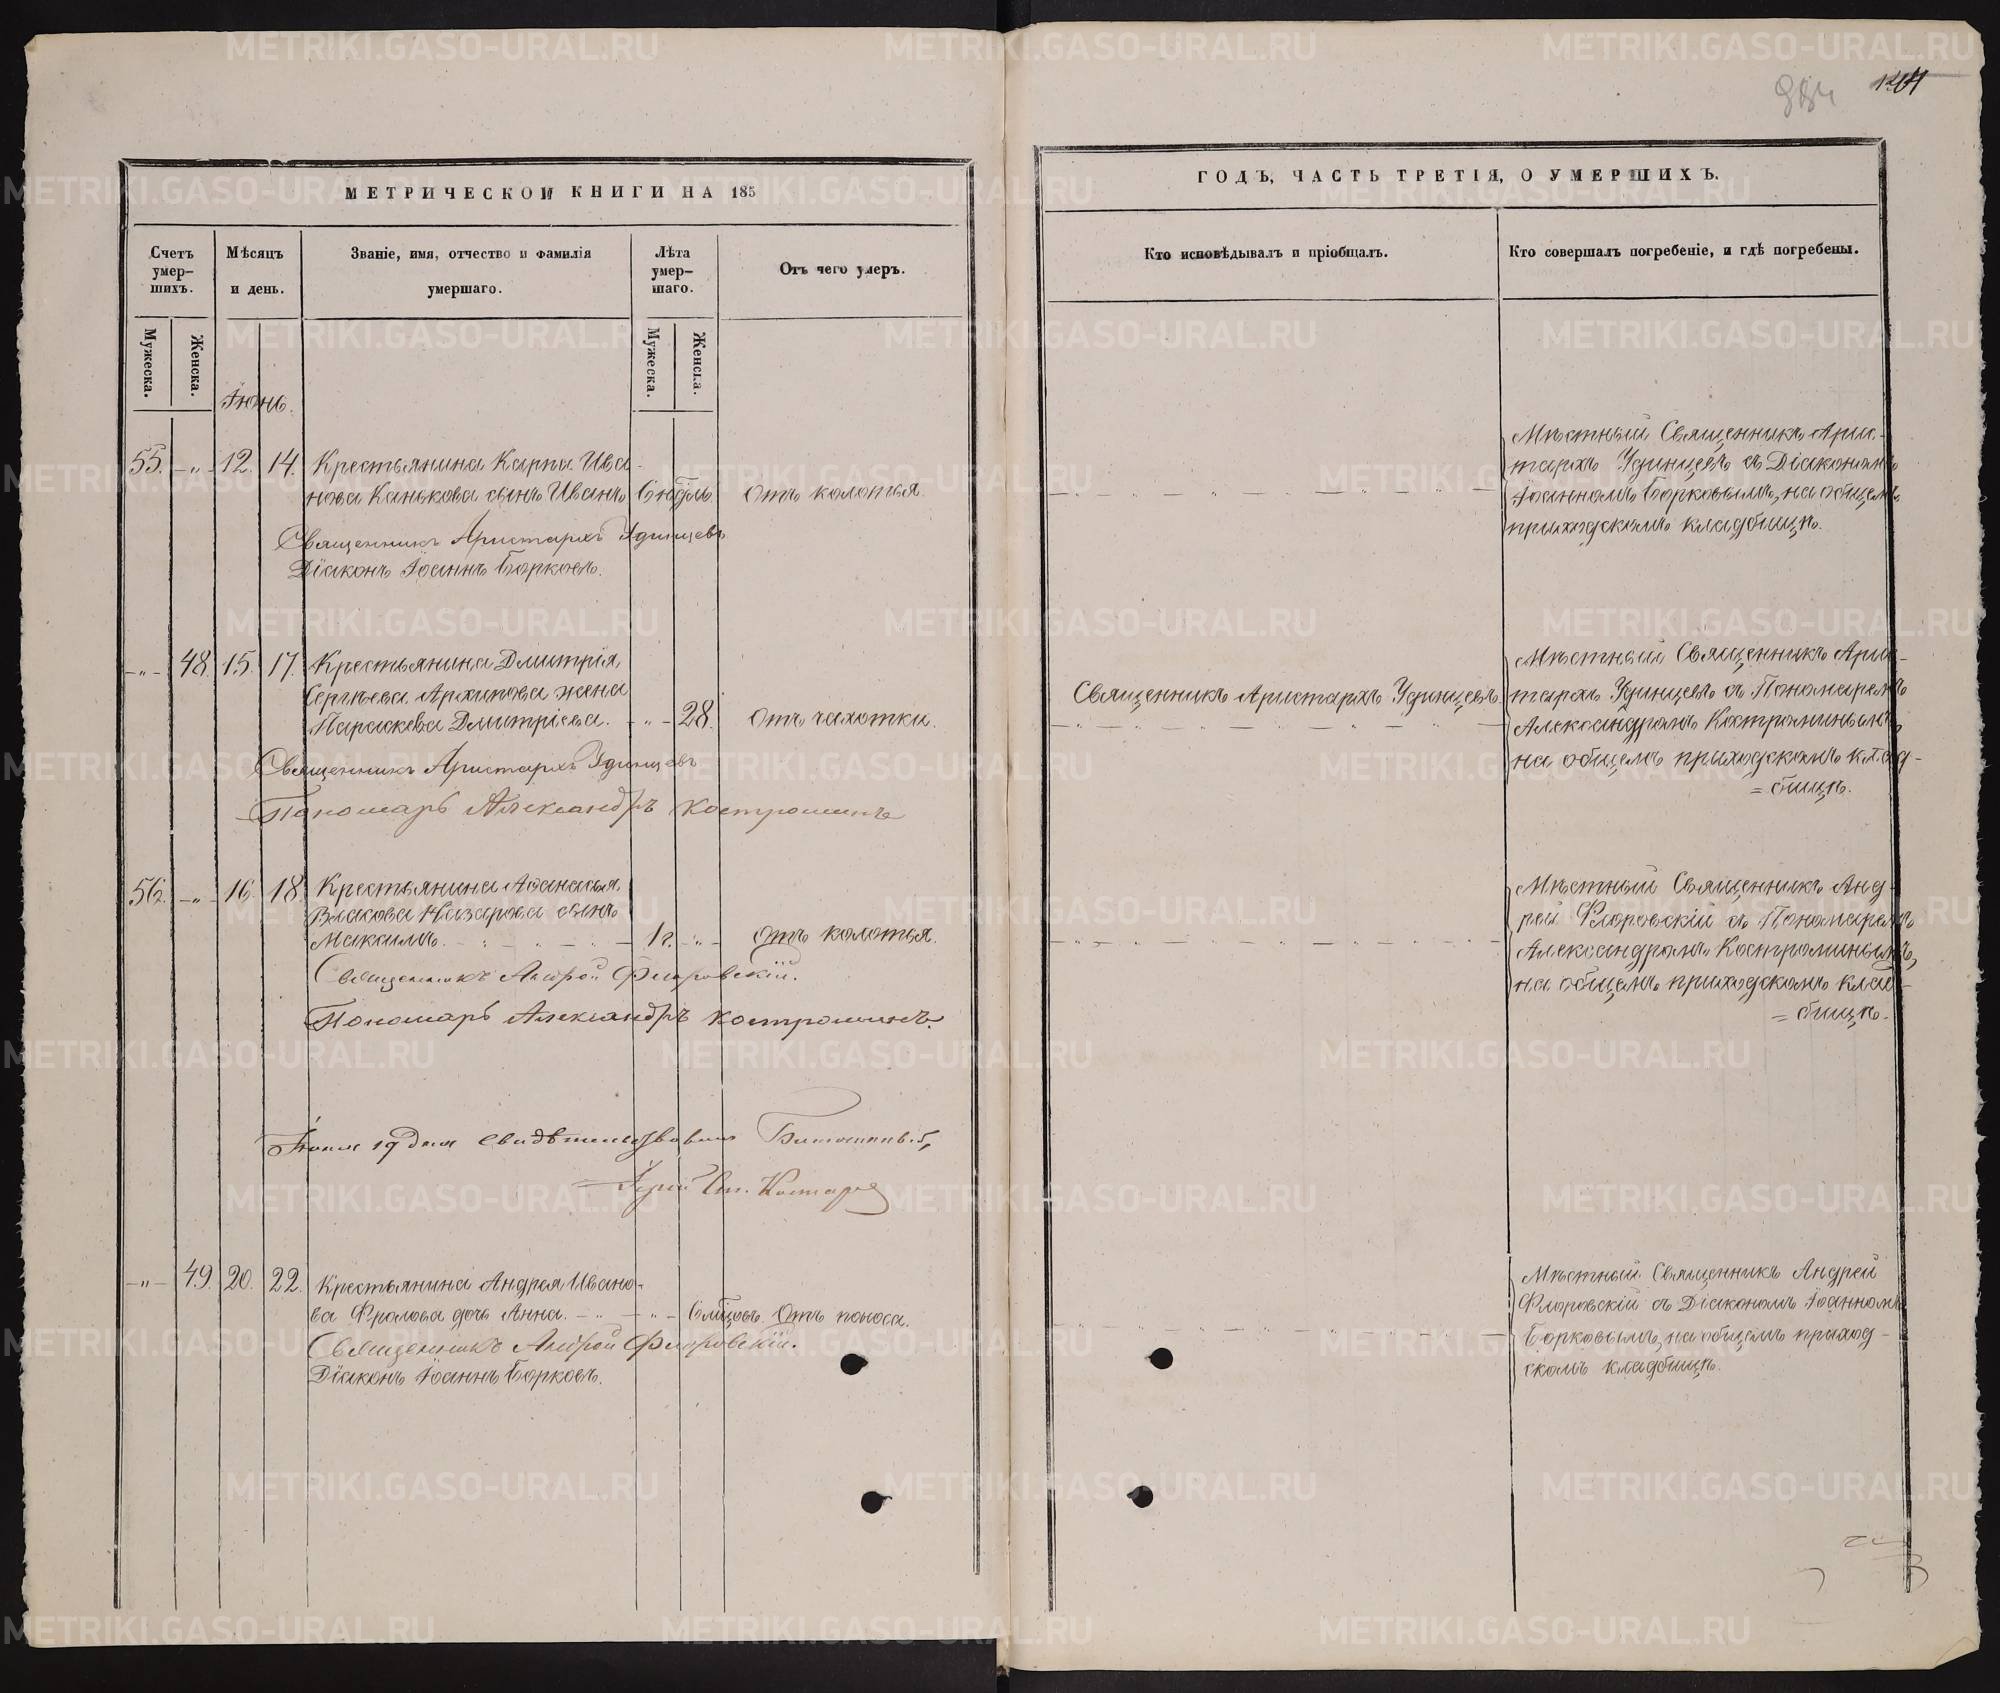 МЕТРИЧЕСКОЙ КНИГИ НА 185
Счетъ умер-шихъ.
Мужеска.
Женска.
Мѣсяцъ и день.
Званіе, имя, отчество и фамилія умершаго.
Лѣта умер-шаго.
Мужеска.
Женска.
Отъ чего умеръ.
Іюнь.
55. -„- 12. 14. Крестьянина Карпа Ива-
нова Канькова сынъ Иванъ 6 нѣдѣль отъ колотья.
Священникъ Аристархъ Удинцевъ
Діаконъ Іоаннъ Борковъ.
-„- 48. 15. 17. Крестьянина Дмитрія
Сергѣева Архипова жена
Параскева Дмитріева. -„- 28. отъ чахотки.
Священникъ Аристархъ Удинцевъ
Пономарь Александръ Костроминъ
56. -„- 16. 18. Крестьянина Аѳанасья
Власова Назарова сынъ
Максимъ. 1 г. -„- отъ колотья.
Священникъ Андрей Флоровскій.
Пономарь Александръ Костроминъ.
Іюня 19 дня свидѣтельствовалъ
Іерей
-„- 49. 20. 22. Крестьянина Андрея Ивано-
ва Фролова дочь Анна. -„- 6 мѣсяцовъ. Отъ поноса.
Священникъ Андрей Флоровскій.
Діаконъ Іоаннъ Борковъ.
ГОДЪ, ЧАСТЬ ТРЕТІЯ, О УМЕРШИХЪ.
Кто исповѣдывалъ и пріобщалъ.
Кто совершалъ погребеніе, и гдѣ погребены.
Мѣстный Священникъ Арис-
тархъ Удинцевъ съ Діакономъ
Іоанномъ Борковымъ, на общемъ
приходскомъ кладбищѣ.
Священникъ Аристархъ Удинцевъ.
Мѣстный Священникъ Арис-
тархъ Удинцевъ съ Пономаремъ
Александромъ Костроминымъ,
на общемъ приходскомъ клад-
=бищѣ.
Мѣстный Священникъ Анд-
рей Флоровскій съ Пономаремъ
Александромъ Костроминымъ,
на общемъ приходскомъ клад-
=бищѣ.
Мѣстный Священникъ Андрей
Флоровскій съ Діакономъ Іоанномъ
Борковымъ, на общемъ приход-
скомъ кладбищѣ.
METRIKI.GASO-URAL.RU